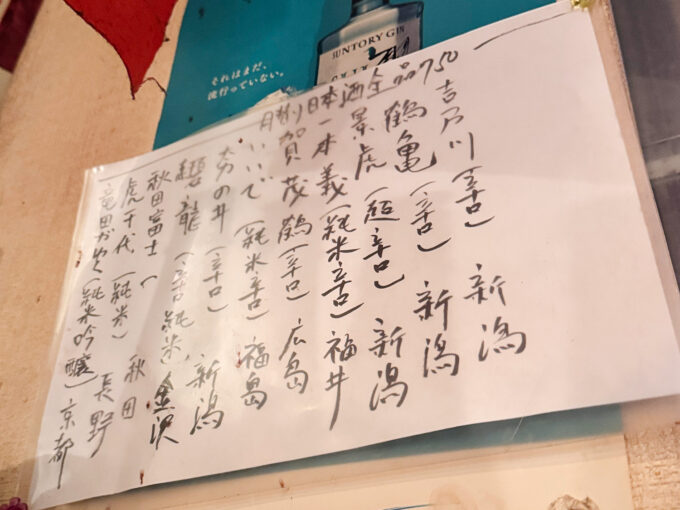 SUNTORY GIN
それはまだ、
流行っていない。
月替り日本酒全品750
吉乃川(辛口) 新潟
鶴亀(辛口) 新潟
景虎(超辛口) 新潟
一本義(純米辛口)福井
賀茂鶴(辛口)広島
いいで(純米辛口)福島
の井(辛口) 新潟
龍(辛口純米)金沢
秋田富士( 秋田
虎千代(純米) 長野
(純米吟醸)京都